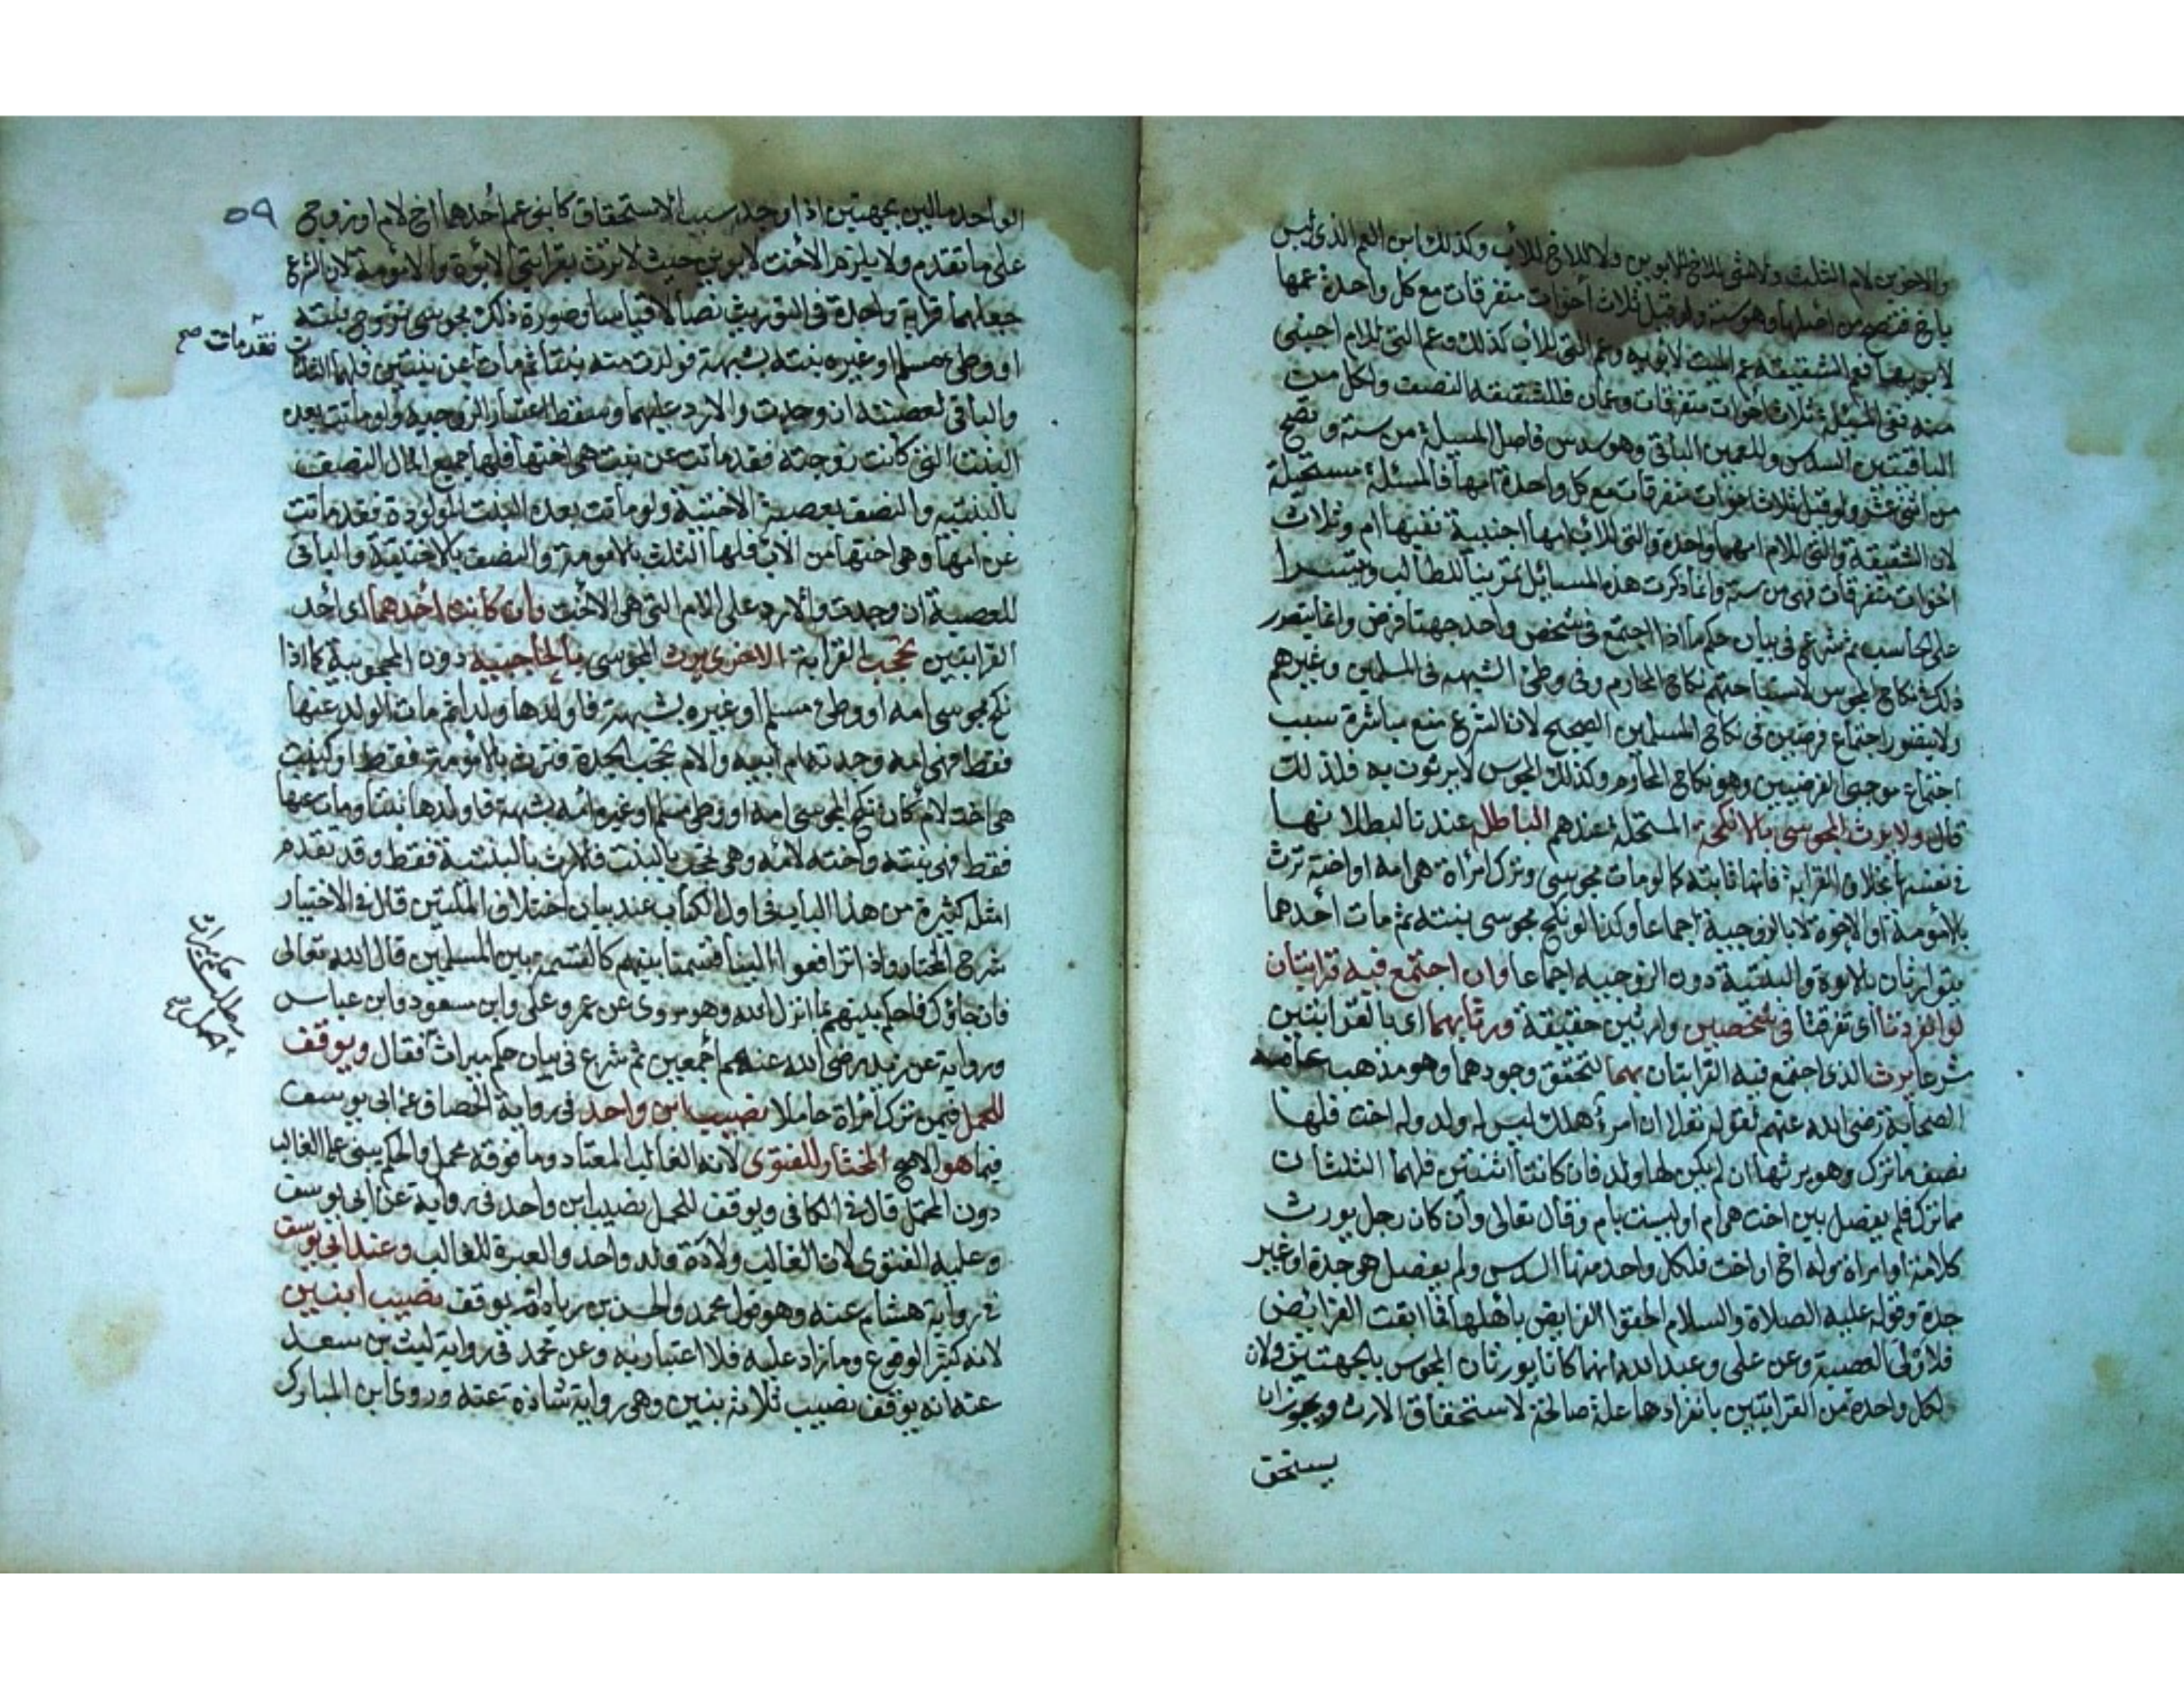 والاخوين لام الثلث ولا شئ للاخ للابوين ولا للاخ للاب وكذلك ابن العم الذى ليس
باخ فتصح من اصلها وهو ستة ولو قيل ثلاث أخوات متفرقات مع كل واحدة عمها
لابويها فعم الشقيقة عم الميت لابويه وعم التى للاب كذلك وعم التى للام اجنبى
منه ففى المسئلة ثلاث اخوات متفرقات وعمان فللشقيقة النصف ولكل من
الباقيتين السدس وللعمين الباقى وهو سدس فاصل المسئلة من ستة وتصح
من اثنى عشر ولو قيل ثلاث اخوات متفرقات مع كل واحدة امها فالمسئلة مستحيلة
لان الشقيقة والتى للام امهما واحدة والتى للاب امها اجنبية ففيها ام وثلاث
اخوات متفرقات فهى من ستة وانما ذكرت هذه المسائل تمرينا للطالب وتيسيرا
على الحاسب ثم شرع فى بيان حكم ما اذا اجتمع فى شخص واحد جهتا فرض وانما يتصور
ذلك فى نكاح المجوس لاستباحتهم نكاح المحارم وفى وطئ الشبهة فى المسلمين وغيرهم
ولا يتصور اجتماع فرضين فى نكاح المسلمين الصحيح لان الشرع منع مباشرة سبب
اجتماع موجبى الفرضيين وهو نكاح المحارم وكذلك المجوس لا يرثون به فلذلك
قال ولا يرث المجوسى بالانكحة المستحلة عندهم الباطلة عندنا لبطلانها
فى نفسها بخلاف القرابة فانها ثابتة كما لو مات مجوسى وترك امرأة هى امه او اخته ترث
بالأمومة او الاخوة لا بالزوجية اجماعا وكذا لو نكح مجوسى بنته ثم مات أحدهما
يتوارثان بالابوة والبنتية دون الزوجية اجماعا وان اجتمع فيه قرابتان
لو انفردتا اى تفرقتا فى شخصين وارثين حقيقة ورثا بهما اى بالقرابتين
شرعا يرث الذى اجتمع فيه القرابتان بهما لتحقق وجودهما وهو مذهب عامة
الصحابة رضى الله عنهم لقوله تعالى ان امرؤ هلك ليس له ولد وله اخت فلها
نصف ما ترك وهو يرثها ان لم يكن لها ولد فان كانتا اثنتين فلهما الثلثان
مما ترك فلم يفصل بين اخت هى ام او ليست بام وقال تعالى وان كان رجل يورث
كلالة او امرأة وله اخ او اخت فلكل واحد منهما السدس ولم يفصل هى جدة او غير
جدة وقوله عليه الصلاة والسلام الحقوا الفرايض باهلها فما ابقت الفرائض
فلاولى العصبة وعن على وعبد الله انهما كانا يورثان المجوس بالجهتين ولان
لكل واحدة من القرابتين بانفرادها علة صالحة لاستحقاق الارث ويجوز ان
يستحق
٥٩
الواحد مالين بجهتين اذا وجد سبب الاستحقاق كابنى عم أحدهما اخ لام او زوج
على ما تقدم ولا يلزم الأخت لابوين حيث لا ترث بقرابتى الأبوة والأمومة لان الشرع
جعلهما قرابة واحدة فى التوريث نصا لا قياسا وصورة ذلك مجوسى تزوج بنته
او وطئ مسلم او غيره بنته بشبهة فولدت منه بنتا ثم مات عن بنتين فلهما الثلثان
والباقى لعصبته ان وجدت والا رد عليهما وسقط اعتبار الزوجية ولو ماتت بعده
البنت التى كانت زوجته فقد ماتت عن بنت هى اختها فلها جميع المال النصف
بالبنتية والنصف بعصبة الاختية ولو ماتت بعده البنت المولودة فقد ماتت
عن امها وهى اختها من الاب فلها الثلث بالامومة والنصف بالاختية والباقى
للعصبة ان وجدت والا رد على الام التى هى الاخت وان كانت احدهما اى احد
القرابتين تحجب القرابة الاخرى يرث المجوسى بالحاجبية دون المحجوبية كما اذا
نكح مجوسى امه او وطئ مسلم او غيره بشبهة فاولدها ولدا ثم مات الولد عنها
فقط فهى امه وجدته ام ابيه والام تحجب الجدة فترث بالامومة فقط او كبنت
هى اخت لام كان نكح المجوسى امه او وطئ مسلم او غيره امه بشبهة فاولدها بنتا ومات عنها
فقط فهى بنته واخته لامه وهى تحجب بالبنت فلا ترث بالبنتية فقط وقد تقدم
امثلة كثيرة من هذا الباب فى اول الكتاب عند بيان اختلاف الملتين قال فى الاختيار
شرح المختار واذا ترافعوا الينا قسمنا بينهم كالقسمة بين المسلمين قال الله تعالى
فان جاؤك فاحكم بينهم بما انزل الله وهو مروى عن عمر وعلى وابن مسعود وابن عباس
ورواية عن زيد رضى الله عنهم أجمعين ثم شرع فى بيان حكم ميراث فقال ويوقف
للحمل فيمن ترك امرأة حاملا نصيب ابن واحد فى رواية الخصاف عن ابى يوسف
فيما هو الاصح المختار للفتوى لانه الغالب المعتاد وما فوقه محتمل والحكم يبنى على الغالب
دون المحتمل قال فى الكافى ويوقف للحمل نصيب ابن واحد فى رواية عن ابى يوسف
وعليه الفتوى لان الغالب ولادة ولد واحد والعبرة للغالب وعند ابى يوسف
فى رواية هشام عنه وهو قول محمد والحسن بن زياد انه يوقف نصيب ابنين
لانه كثير الوقوع وما زاد عليه فلا اعتبار به وعن محمد فى رواية ليث بن سعد
عنه انه يوقف نصيب ثلاثة بنين وهى رواية شاذة عنه وروى ابن المبارك